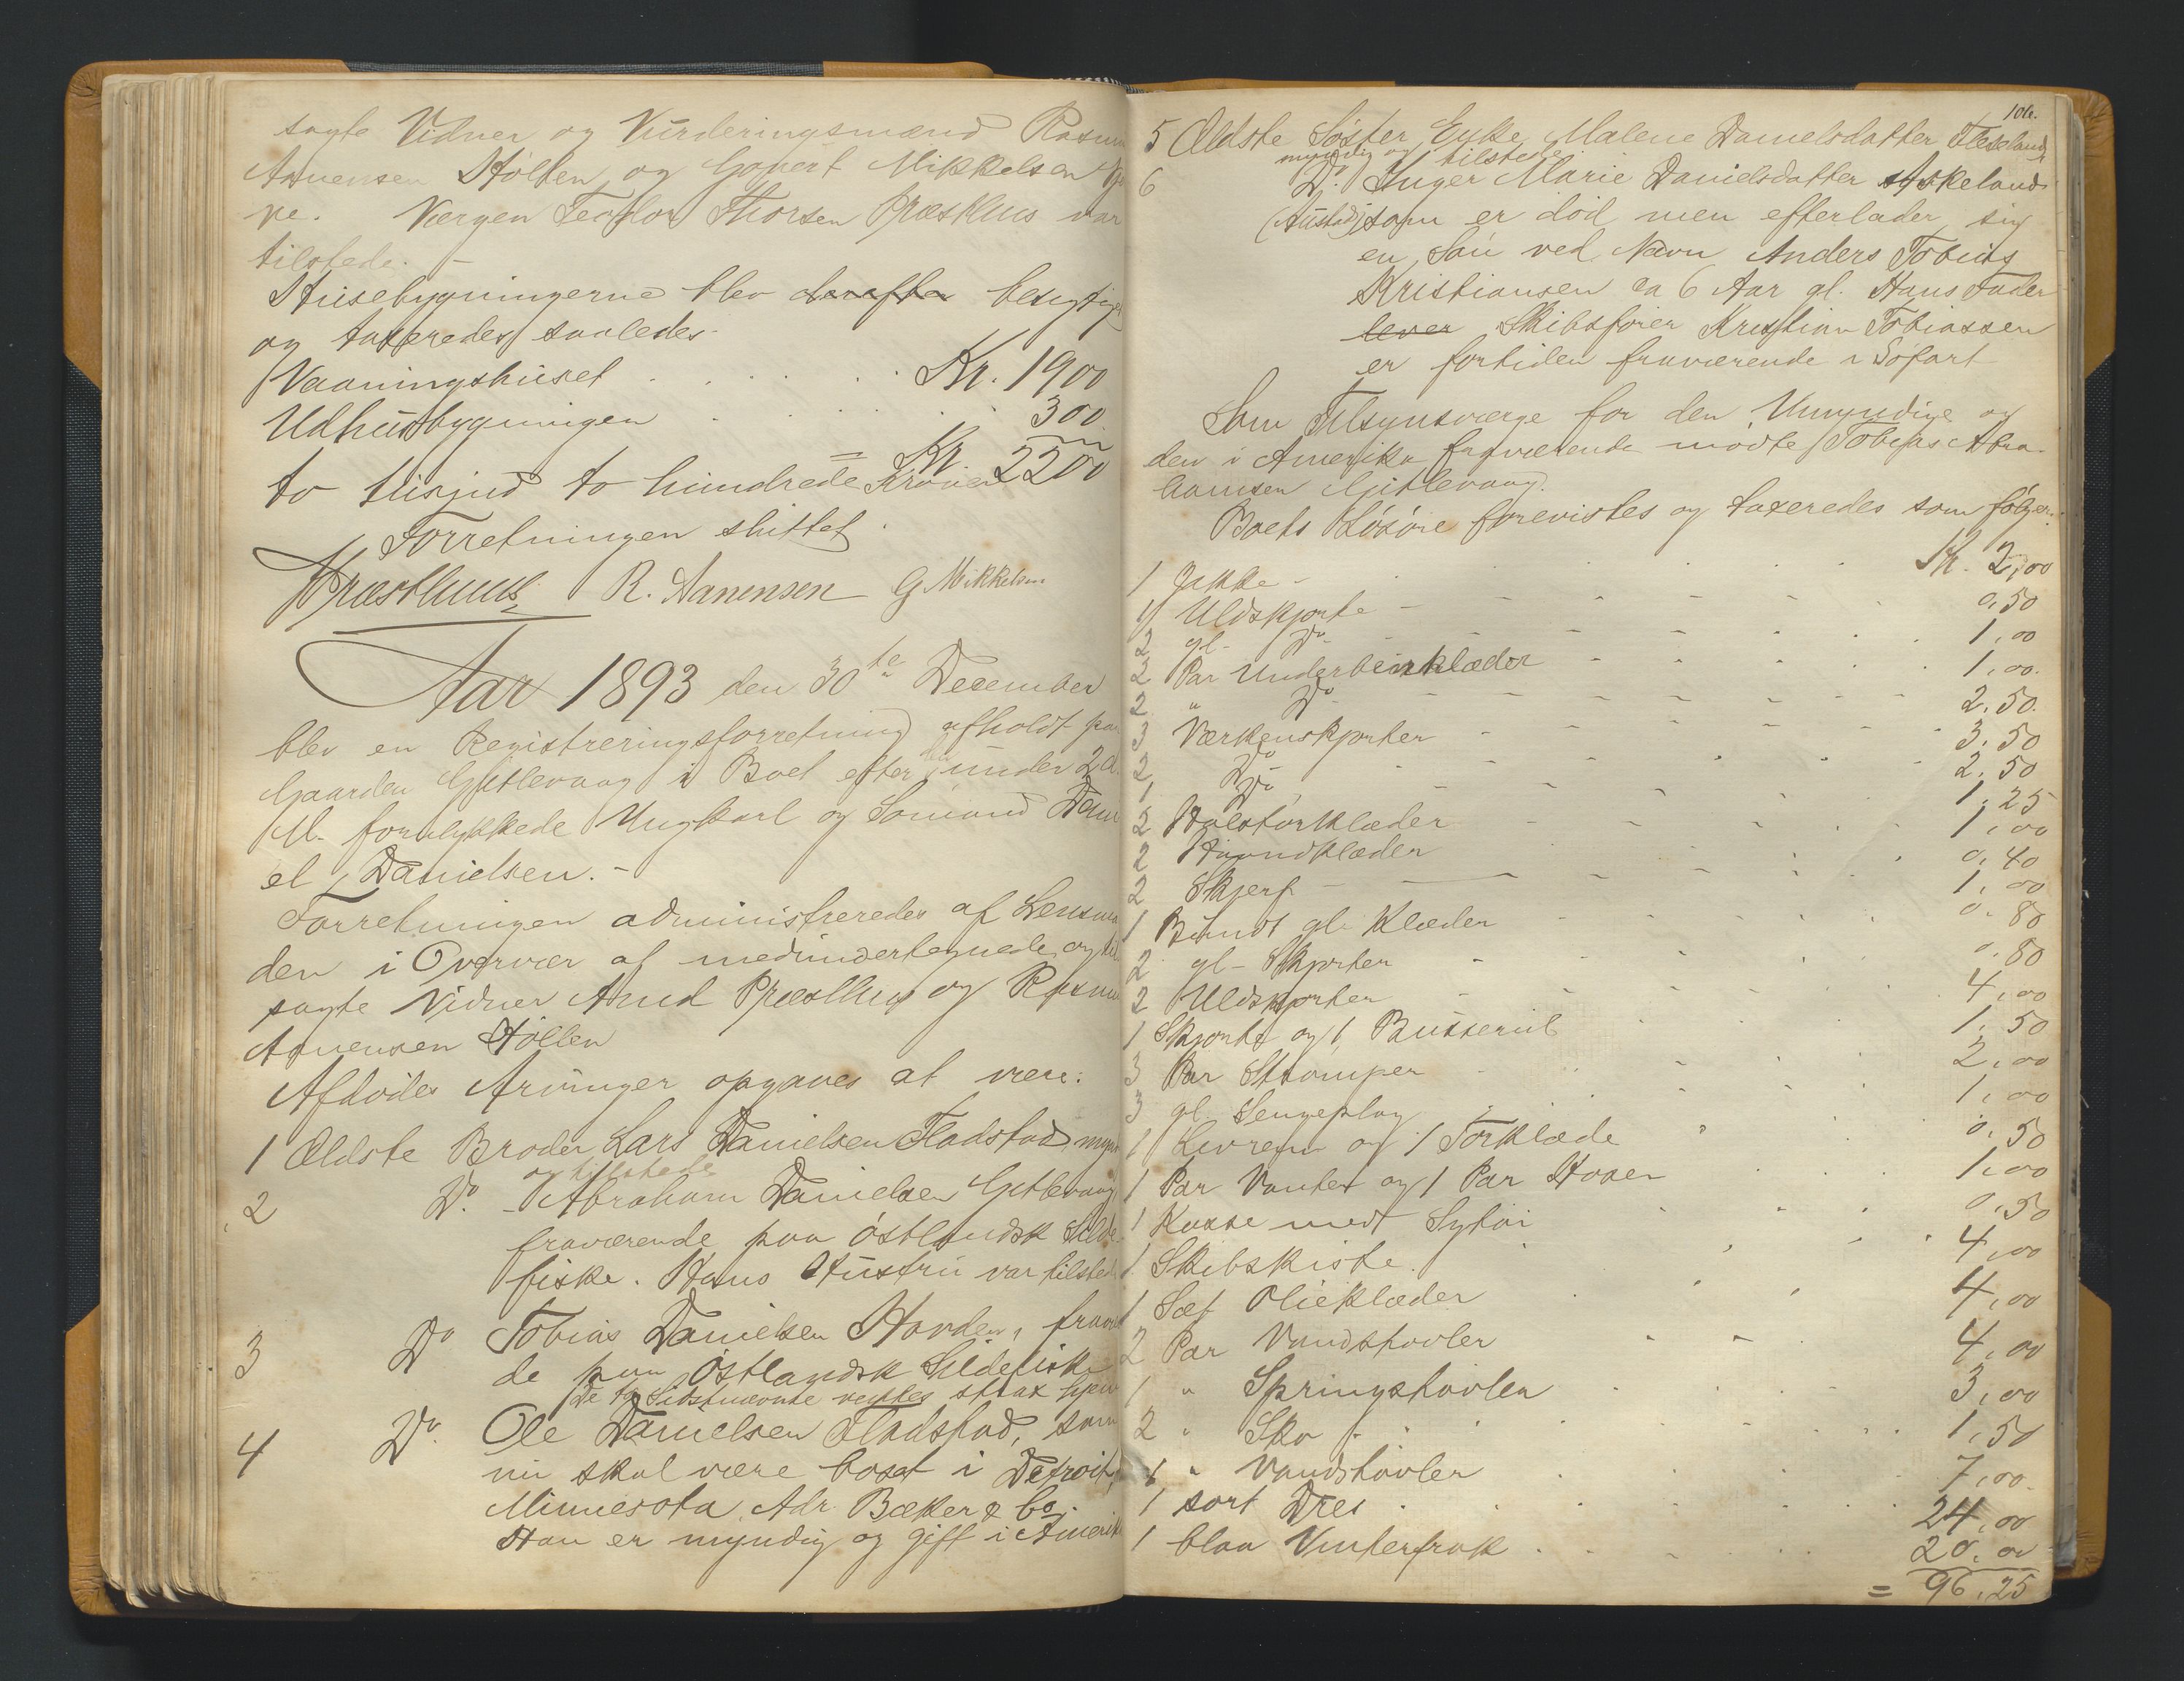 sagte Vidner og Vurderingsmænd Rasmu
Aanensen Hølten og Govert Mikkelsen
pe. Værgen Teodor Thorsen Præsthus var
tilstede. -
Husebygningerne blev derefter besigtiget
og taxeredes saaledes
Vaaningshuset . . . . . Kr. 1900
Udhusbygningen . . . . 300
= Kr. 2200
to tusind to hundrede Kroner
Forretningen sluttet.
Præsthuus R. Aanensen G. Mikkelsen
Aar 1893 den 30te December
blev en Registreringsforretning afholdt paa
Gaarden Gitlevaag i Boet efter den under 2d.
M. forulykkede Ungkarl og Sømand Dani
el Danielsen. -
Forretningen administreredes af Lensman
den i Overvær af medundertegnede og til
sagte Vidner Amd Præsthus og Rasmu
Aanensen Høllen
Afdødes Arvinger opgaves at være:
1 Ældste Broder Lars Danielsen Fladstad myn
og tilstede
2 Do. Abraham Danielsen Gitlevaag,
fraværende paa østlandsk Silde
fiske. Hans Hustru var tilstede
3 Do Tobias Danielsen Haven, fravæ
de paa Østlandsk Sildefiske
De to Sidstnævnte ventes strax hjem
4 Do. Ole Danielsen Fladstad, som
nu skal være bosat i Detroit,
Minnesota, Adr. Bæker & Co.
Han er myndig og gift i Amerik
106.
5 Ældste Søster Enke Malene Danielsdatter Fleseland
myndig og tilstede
6 Do. Inger Marie Danielsdatter Askeland
(Austad) som er død men efterlader sig
en Søn ved Navn Anders Tobias
Kristiansen ca 6 Aar gl. Hans Fader
lever Skibsfører Kristian Tobiassen
er fortiden fraværende i Søfart
Som Tilsynsværge for den Umyndige og
den i Amerika fraværende mødte Tobias Abra-
hamsen Gitlevaag.
Boets Løsøre forevistes og taxeredes som følger:
1 Jakke - . . . . . Kr. 2,00
1 Uldskjorte - - - - 0,50
2 gl. Do. - - - 1,00
2 Par Underbenklæder - - - 1,00.
2 " Do. - - - 2,50.
3 Værkenskjorter - - - 3,50
2 Do - - - 2,50
1 Do - - - 1,25
2 Halstørklæder - - - 1,00
2 Haandklæder . . . 0,40
2 Skjerf - - - - 1,00
1 Bundt gl. Klæder - - - 0,80
2 gl- Skjorter - - - 0,80
2 Uldskjorter - - - 4,00
1 Skjorte og 1 Busserul . . . 1,50
3 Par Strømper - - - 2,00
3 gl. Sengeplag - - - 1,00
1 Livrem og 1 Tørklæde . . . 0,50
1 Par Vanter og 1 Par Hoser . . . 1,00
1 Kasse med Sytøi . . . 0,50
1 Skibskiste . . . 4,00
1 Sæt Olieklæder . . . 4,00
2 Par Vandstøvler . . . 4,00
1 " Springstøvler . . . 3,00
2 " Sko . . . 1,50
1 " Vandstøvler . . . 7,00.
1 sort Dres . . . 24,00
1 blaa Vinterfrak . . . 20,00
= 96,25